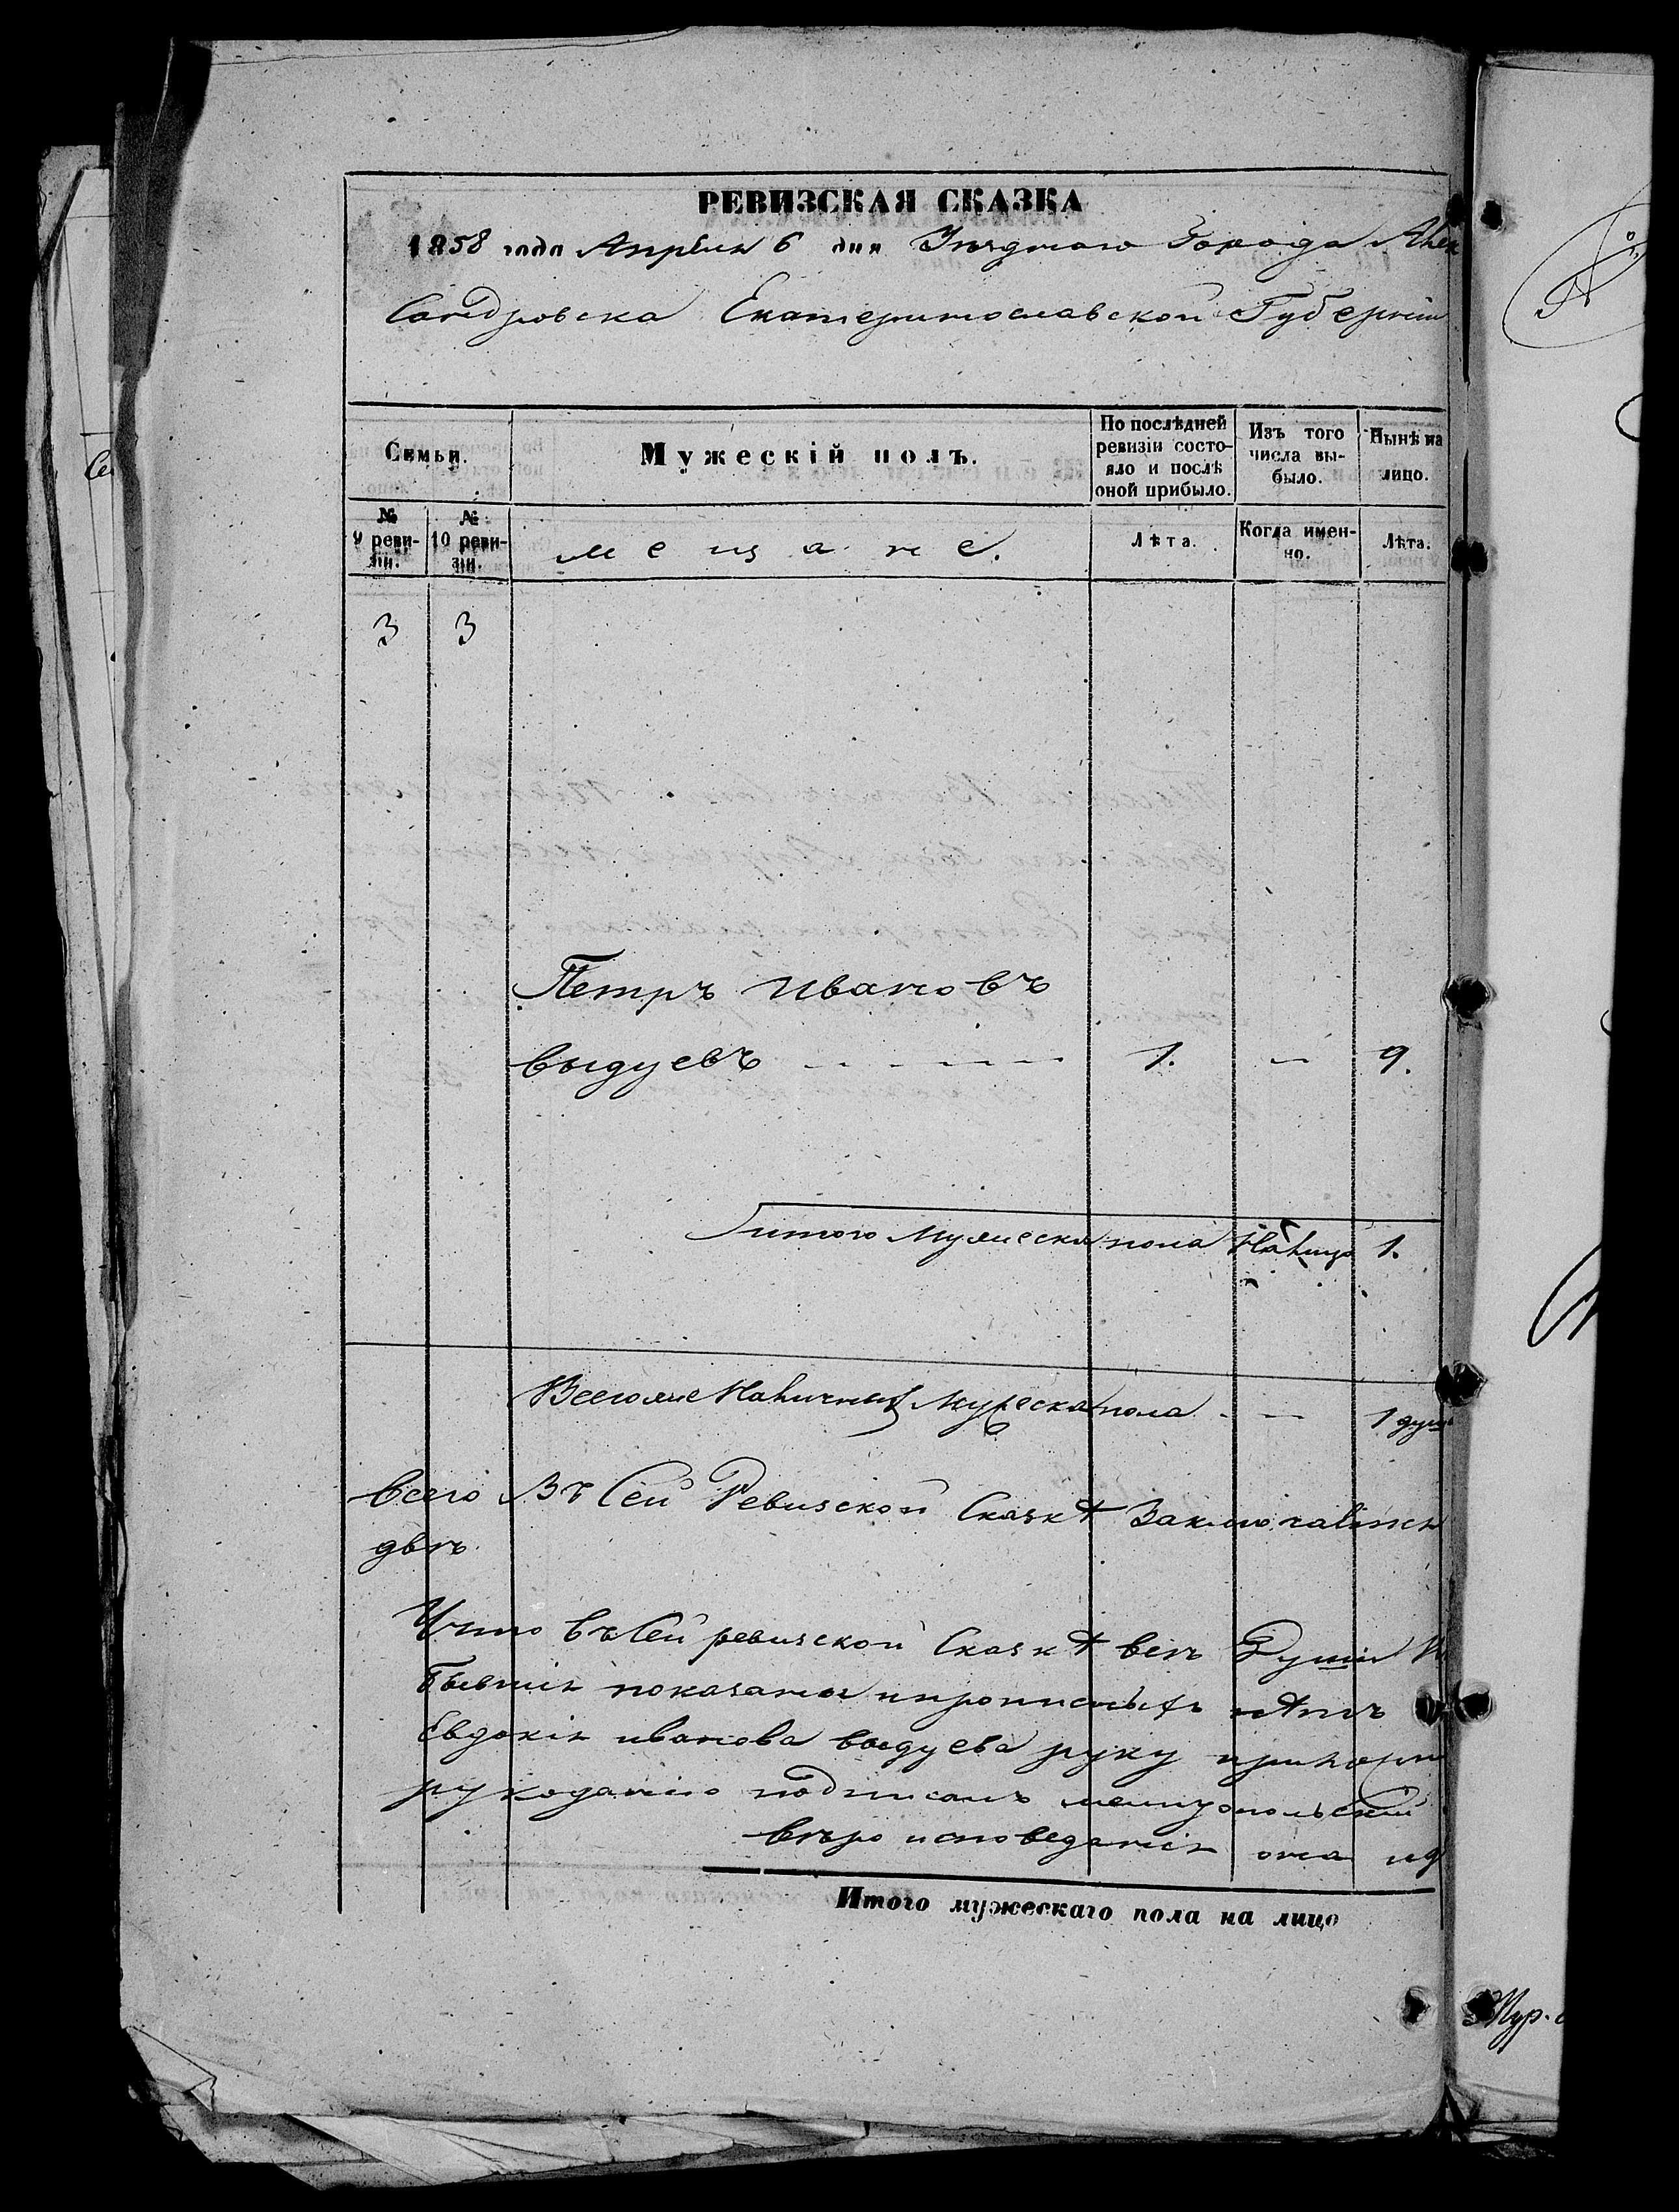 РЕВИЗСКАЯ СКАЗКА
1858 года Апреля 6 дня Уезднаго Города Алек
сандровска Екатеринославской Губернiи
Семьи.
Мужескiй полъ.
По послѣдней ревизiи состо-
яло и послѣ
оной прибыло.
Изъ того
числа вы-
было.
Нынѣ на
лицо.
№
9 реви-
зiи.
№
10 реви-
зiи.
мещане.
Лѣта.
Когда имен-
но.
Лѣта.
3 3
Петръ Ивановъ
выдуевъ 1. — 9.
итого мужеска пола налицо 1.
Всего же Наличных мужеска пола — 1 душ
всего Въ Сей Ревизской Сказкѣ Заключается
двѣ
Что въ Сей ревизской Сказкѣ всѣ Души
показаны и прописныхъ нѣтъ
Евдокiя иванова выдуева руку
рукоданiю подписалъ мелитопольскiй
вѣро исповеданiя она
Итого мужескаго пола на лицо